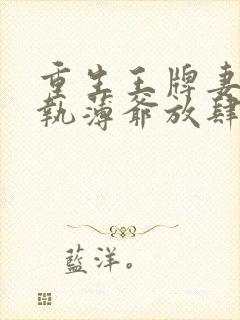 重生王牌妻
執薄爺放肆
藍洋。